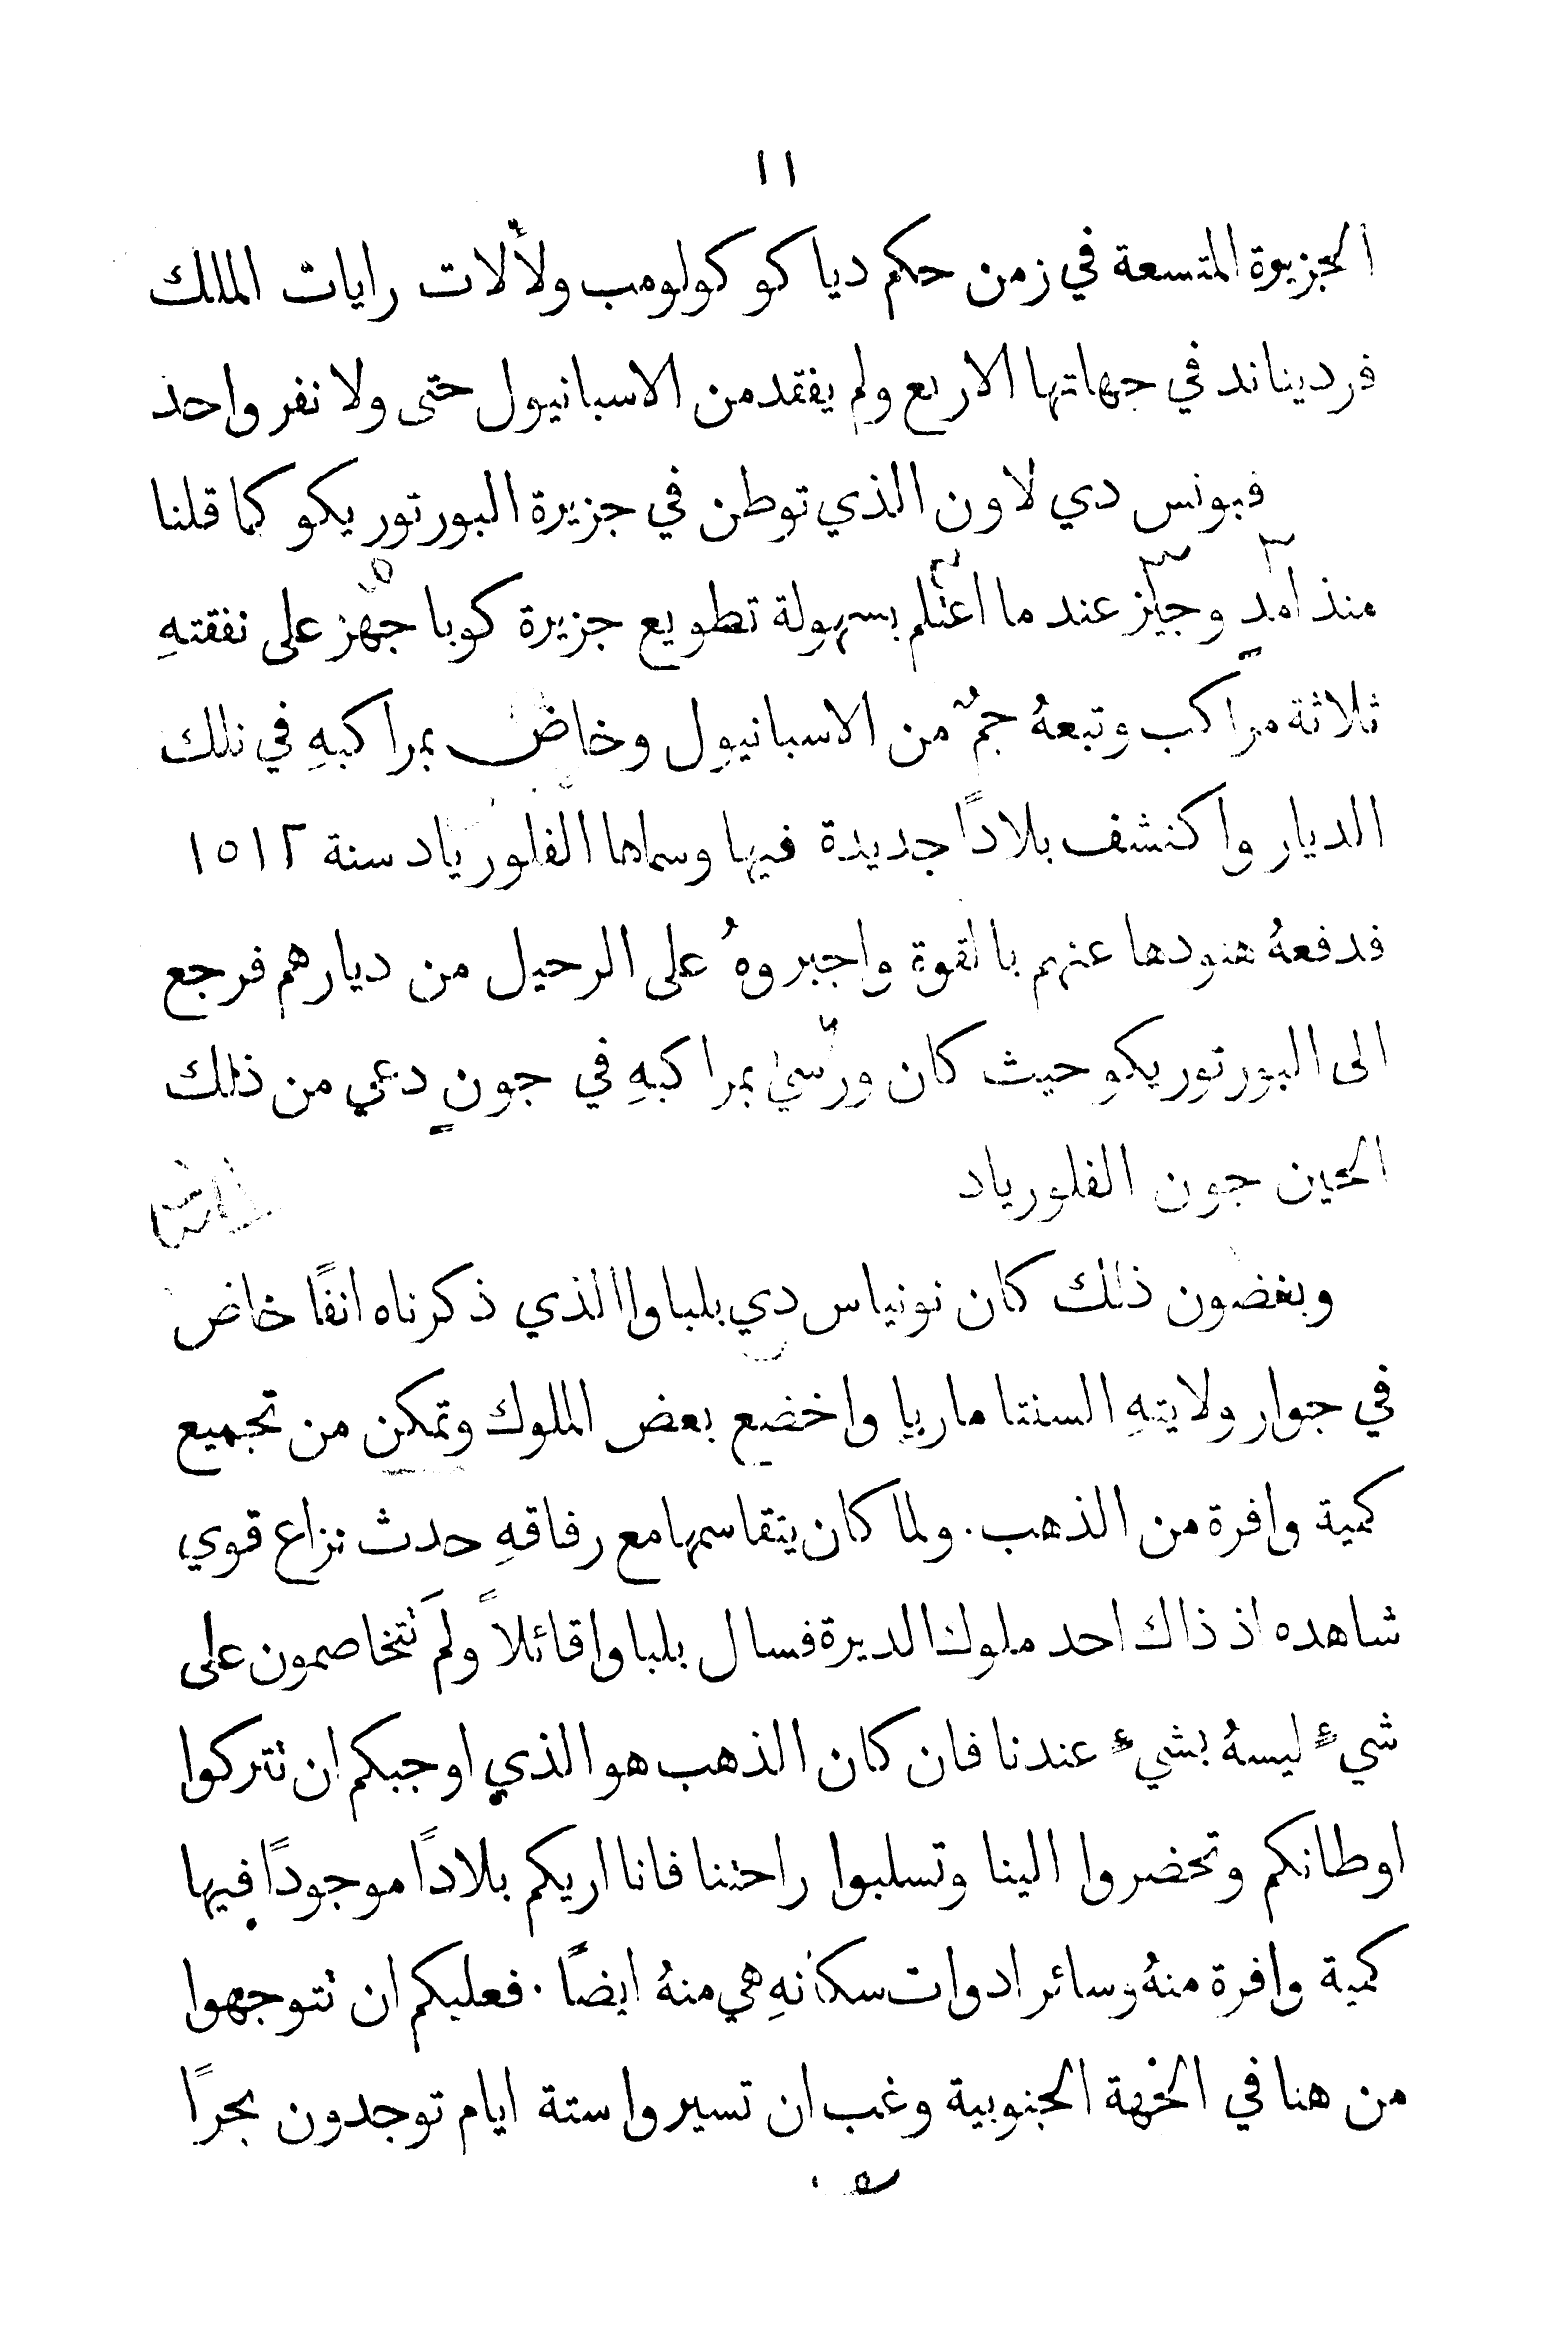 ١١
الجزيرة المتسعة في زمن حكم دياكو كولومب ولألات رايات الملك
فرديناند في جهاتها الاربع ولم يفقد من الاسبانيول حتى ولا نفر واحد
فبونس دي لاون الذي توطن في جزيرة البورتوريكو كما قلنا
منذ امدٍ وجيز عند ما اعتلم بسهولة تطويع جزيرة كوبا جهز على نفقتهِ
ثلاثة مراكب وتبعهُ جمٌ من الاسبانيول وخاض بمراكبهِ في تلك
الديار واكتشف بلادًا جديدة فيها وسماها الفلورياد سنة ١٥١٢
فدفعهُ هنودها عنهم بالقوة واجبروهُ على الرحيل من ديارهم فرجع
الى البورتوريكو حيث كان ورسى بمراكبهِ في جونٍ دعي من ذلك
الحين جون الفلورياد
وبغضون ذلك كان نونياس دي بلباوا الذي ذكرناه انفًا خاض
في جوار ولايتهِ السنتا ماريا واخضع بعض الملوك وتمكن من تجميع
كمية وافرة من الذهب. ولما كان يتقاسمها مع رفاقهِ حدث نزاع قوي
شاهده اذ ذاك احد ملوك الديرة فسال بلباوا قائلاً ولمَ تتخاصمون على
شيءٍ ليسهُ بشيءٍ عندنا فان كان الذهب هو الذي اوجبكم ان تتركوا
اوطانكم وتحضروا الينا وتسلبوا راحتنا فانا اريكم بلادًا موجودًا فيها
كمية وافرة منهُ وسائر ادوات سكانهِ هي منهُ ايضًا. فعليكم ان تتوجهوا
من هنا في الجهة الجنوبية وغب ان تسيروا ستة ايام توجدون بحرًا